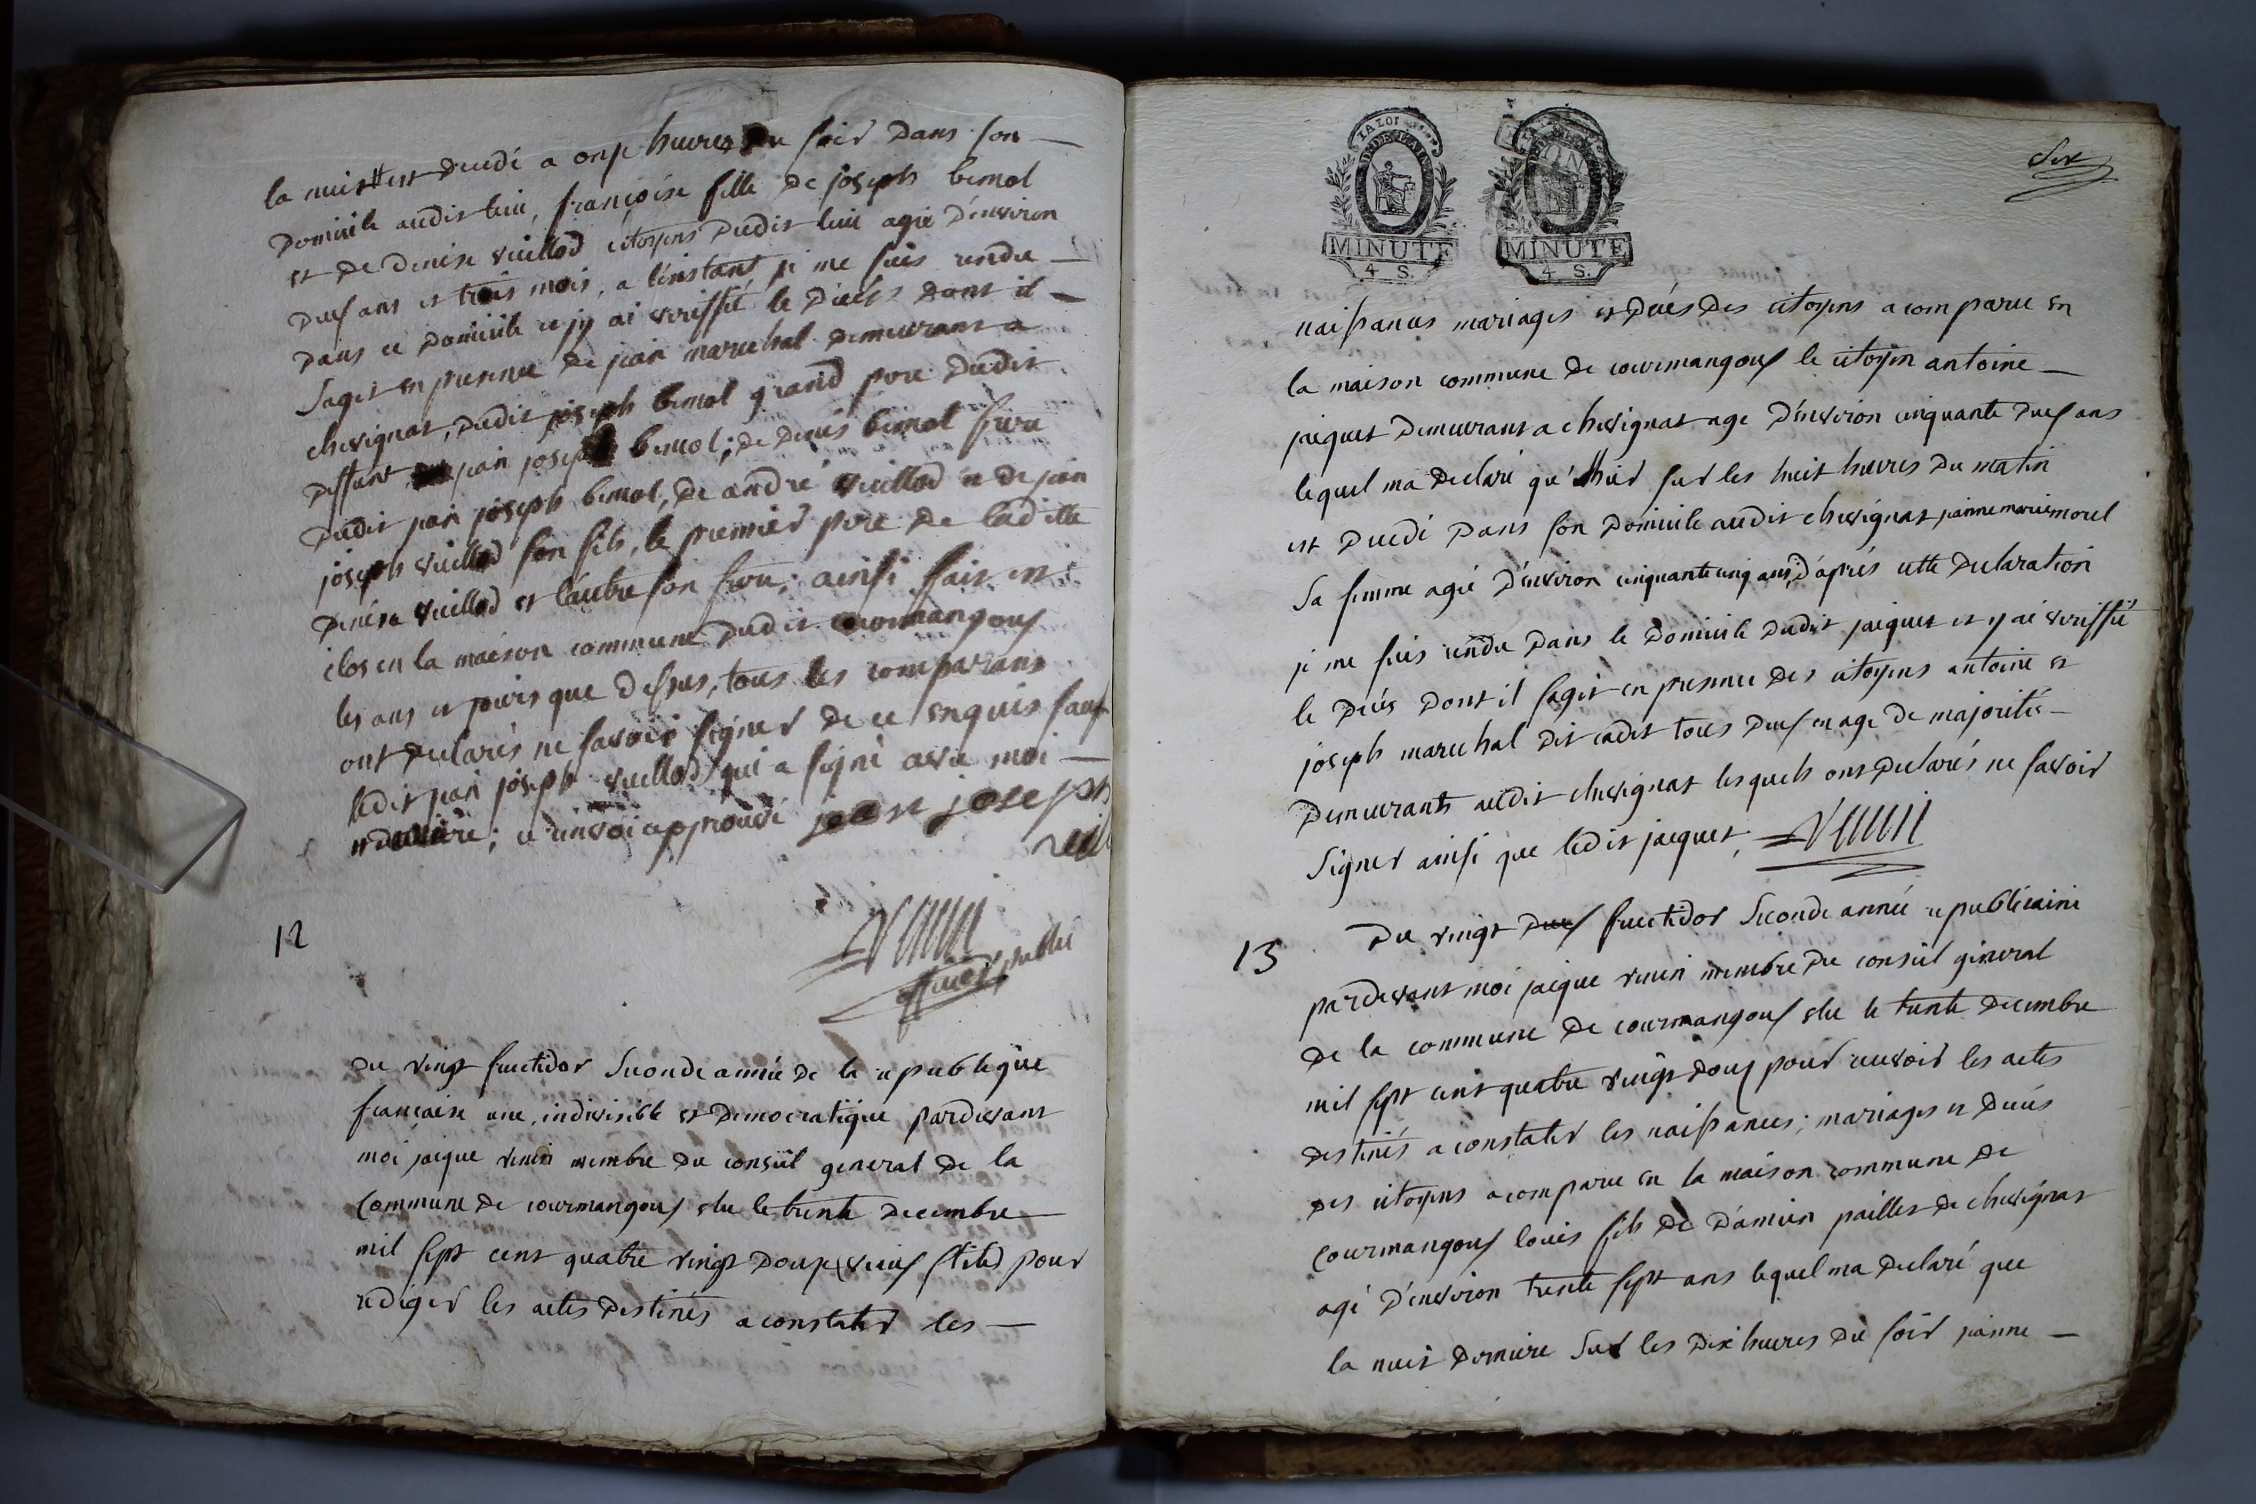 la nuit est decedé a onze heures du soir dans son
Domicile audit lieu, françoise fille de joseph bemol
et de Denise vuillod citoyens dudit lieu agée d'environ
deux ans et trois mois, a l'instant je me suis rendu
dans ce domicile et j'y ai veriffié le décés dont il
sagit en presence de jean marechal demeurant a
chevignat, dudit joseph bemol grand pere dudit
deffunt jean joseph bemol; de denis bemol frere
dudit jean joseph bemol, de andré vuillod et de jean
joseph vuillod son fils, le premier pere de laditte
Denise vuillod et l'autre son frere; ainsi fait et
clos en la maison commune dudit courmangoux
les ans et jours que dessus, tous les comparans
ont declarés ne savoir signer de ce enquis sauf
ledit jean joseph vuillod qui a signé avec moi
; ce renvoi approuvé jean joseph
vuil
venin
officier public
12
du vingt fructidor seconde année de la republique
francaise une, indivisible et democratique pardevant
moi jacque venin membre du conseil general de la
commune de courmangoux elu le trente decembre
mil sept cent quatre vingt douze (vieux stile) pour
rediger les actes destinés a constater les
LA LOI
MINUTE
4 S.
MINUTE
4 S.
six
naissances mariages et décés des citoyens a comparu en
la maison commune de courmangoux le citoyen antoine
jacquet demeurant a chevignat age d'environ cinquante deux ans
lequel ma declaré qu'hier sur les huit heures du matin
est decedé dans son domicile audit chevignat jeanne marie morel
sa femme agée d'environ cinquante cinq ans, d'aprés cette declaration
je me suis rendu dans le domicile dudit jacquet et y ai veriffié
le décés dont il sagit en presence des citoyens antoine et
joseph marechal dit cadet tous deux en age de majorités
demeurants audit chevignat lesquels ont declarés ne savoir
signer ainsi que ledit jacquet. venin
13
Du vingt deux fructidor seconde année republicaine
pardevant moi jacque venin membre du conseil general
de la commune de courmangoux elu le trente decembre
mil sept cent quatre vingt douz pour recevoir les actes
destinés a constater les naissances; mariages et décés
des citoyens a comparu en la maison commune de
courmangoux louis fils de damien paillet de chevignat
agé d'environ trente sept ans lequel ma declaré que
la nuit derniere sur les dix heures du soir jeanne